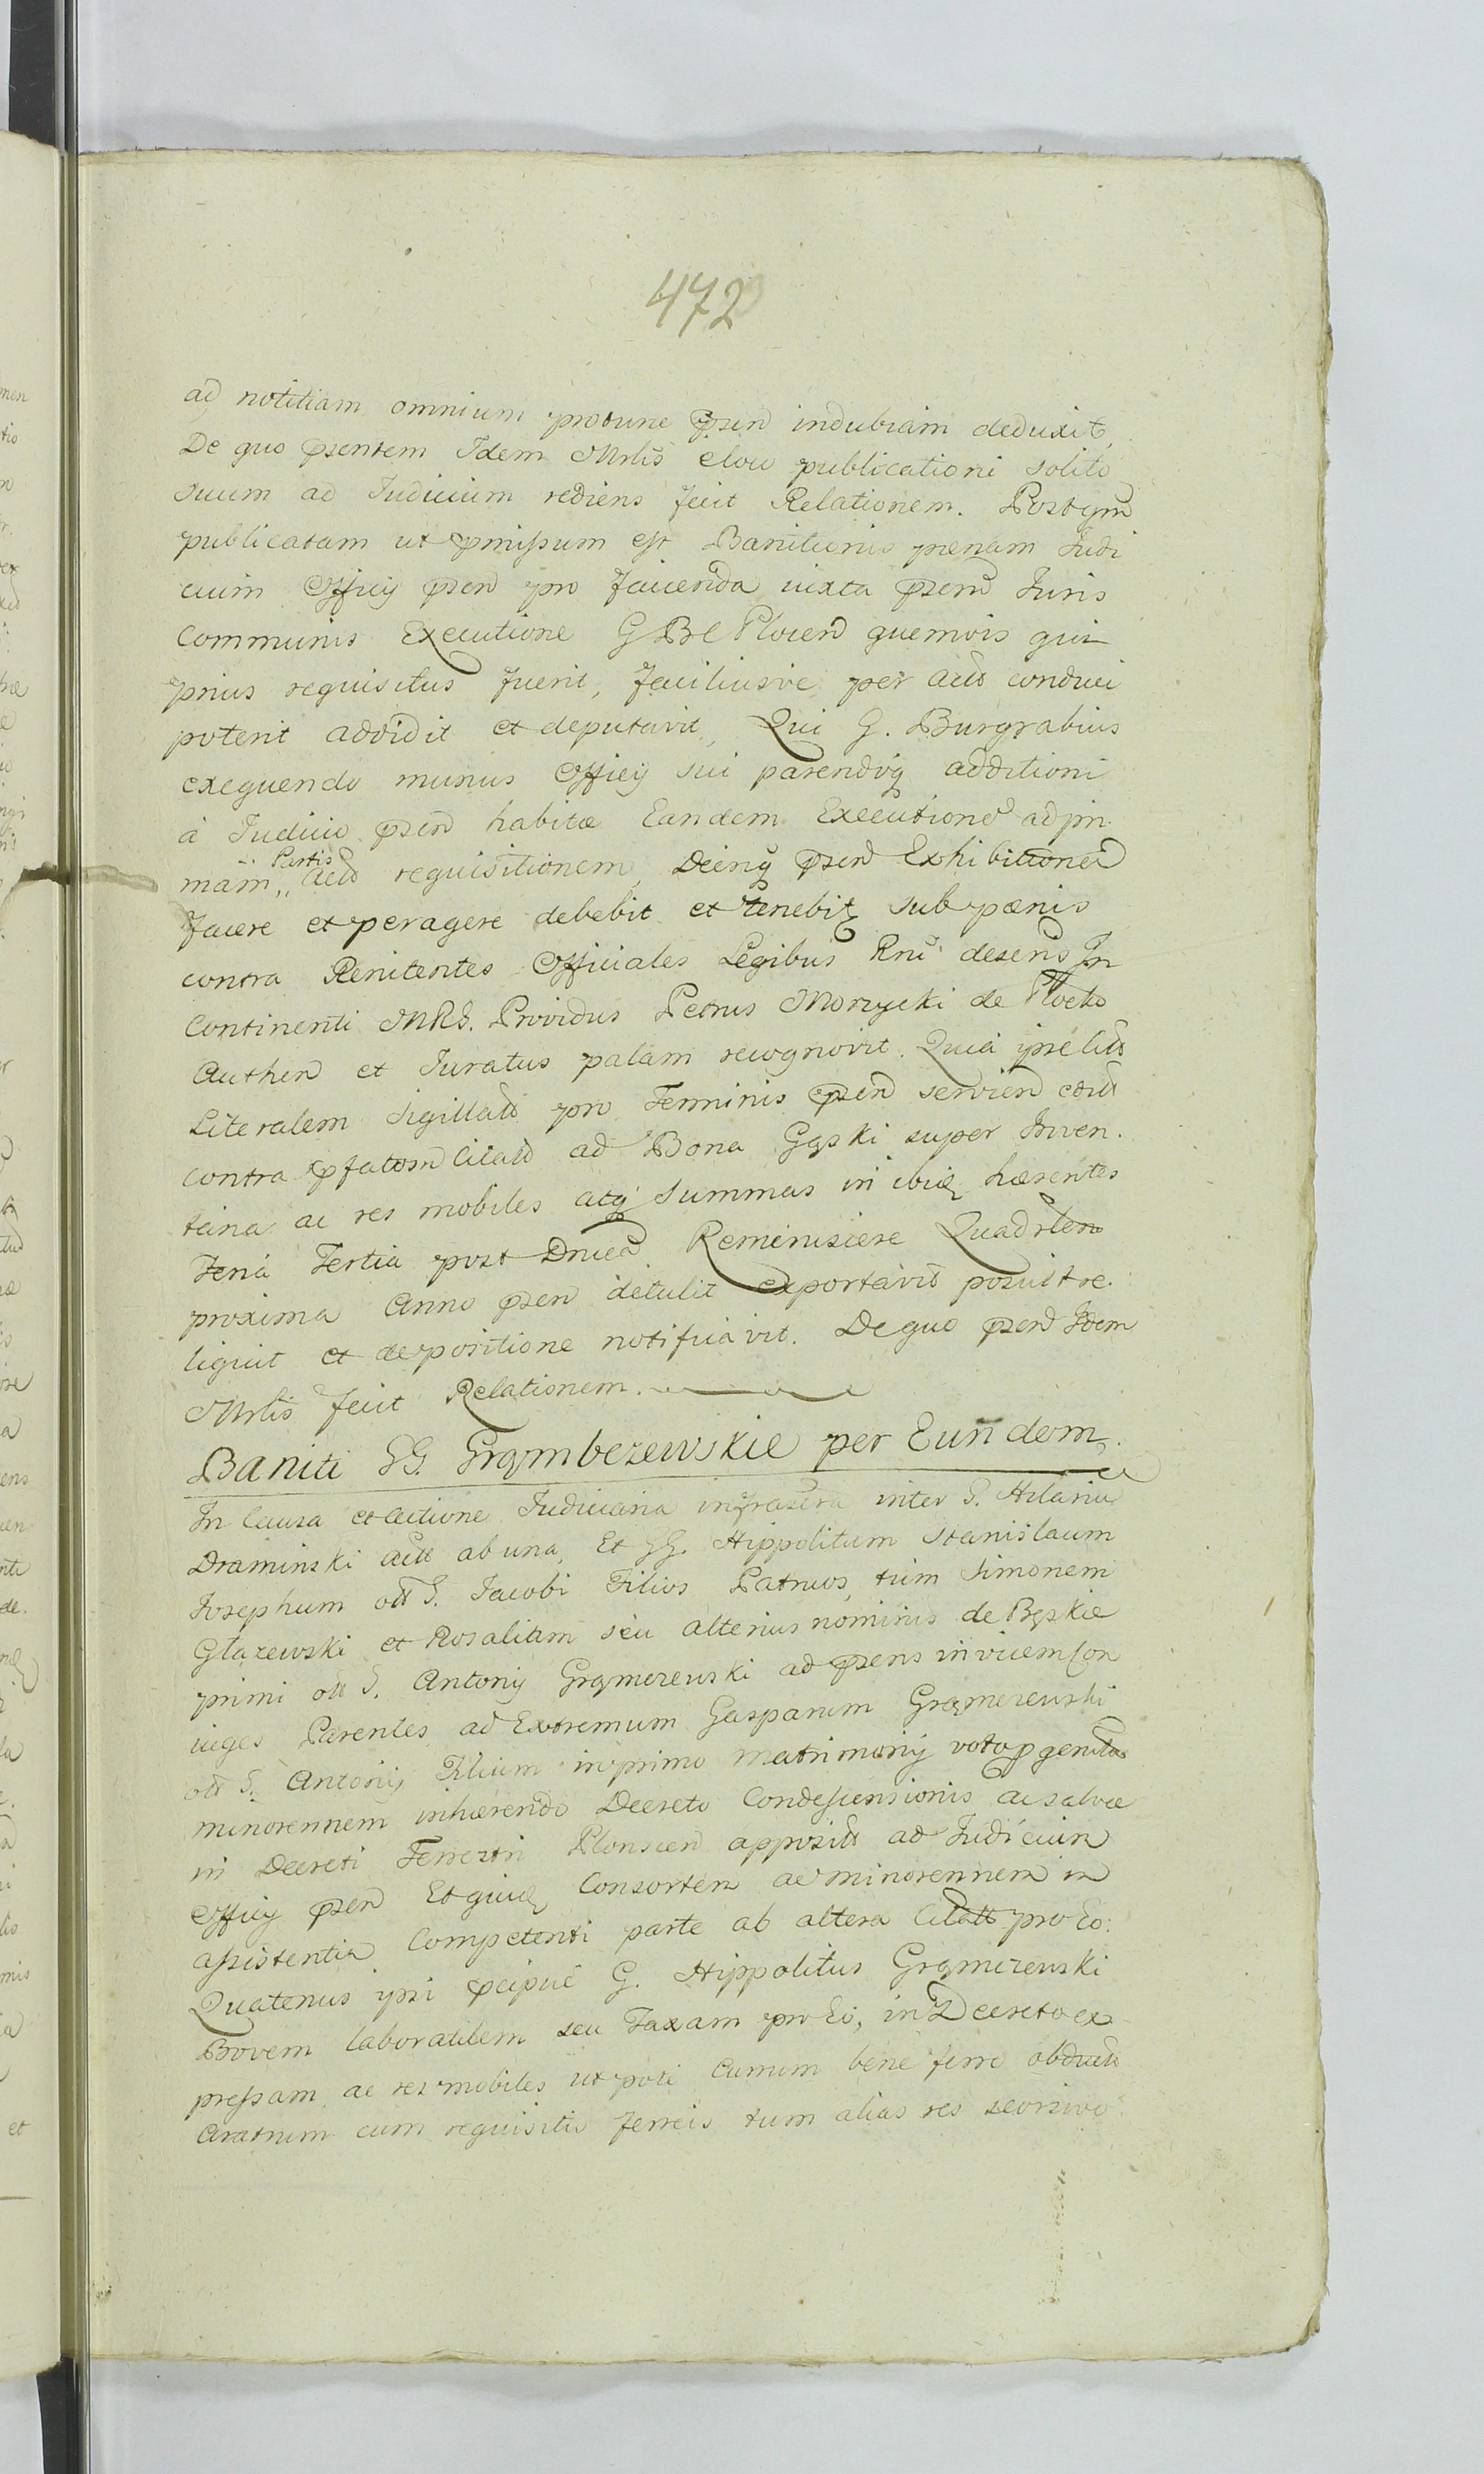 472
ad notitiam omnium protunc psen indubiam deduxit,
De quo psentem Idem Mrlis e loco publicationi solito
suum ad Iudicium rediens fecit Relationem. Postqm
publicatam ut pmissum est Banitionis pænam Iudi
cium Officij psen pro facienda iuxta psens Iuris
Communis Executione GBC Plocen quemvis qui
prius requisitus fuerit, faciliusve per actt conduci
poterit addidit et deputavit, Qui G. Burgrabius
exequendo munus Officij sui parendoq additioni
à Iudicio psen habitæ Eandem Executione ad pri
mam Partis actt requisitionem, Deinq psen Exhibitione
facere et peragere debebit et tenebit sub pænis
contra Renitentes Officiales Legibus Rni descris In
Continenti MRS. Providus Petrus Morzycki de Płocko
Authen et Iuratus palam recognovit. Quia ipse litt
Literalem Sigillatt pro Terminis psen servien
contra pfatom Citatt ad Bona Gąski super Inven.
taria ac res mobiles atq Summas in ibiq hærentes
Feria Tertia post Dnica Reminiscere Quadrlem
proxima Anno psen detulit exportavit posuit re.
liquit et de positione notificavit. De quo psen Idem
Mrlis fecit Relationem.
Baniti GG. Grąmbczewskie per Eundem.
In Causa et Actione Iudiciaria infrascra inter G. Hilariu
Draminski actt ab una, Et GG. Hippolitum Stanislaum
Iosephum ott G. Iacobi Filios Patruos, tum Simonem
Głazewski et Rosaliam seu alterius nominis de Bąskie
primi ott G. Antonij Grąmczewski ad psens invicem Con
iuges Parentes ad Extremum Gasparum Grąmczewski
ott G. Antonij Filium in primo matrimonij voto pgenitos
minorennem inhærendo Decreto Condescensionis ac salvæ
in Decreti Terrestri Plonscen appositt ad Iudicium
Officij psen Et quidq Consorten ac minorennem in
assistentia Competenti parte ab altera Citatt pro Eo:
Quatenus ipsi pcipue G. Hippolitus Grąmczewski
Bovem laboratilem seu Taxam pro Eo, in Decreto ex
pressam, ac res mobiles ut pote Currum bene ferro obductt
Aratrum cum requisitis ferreis tum alias res seorsivo